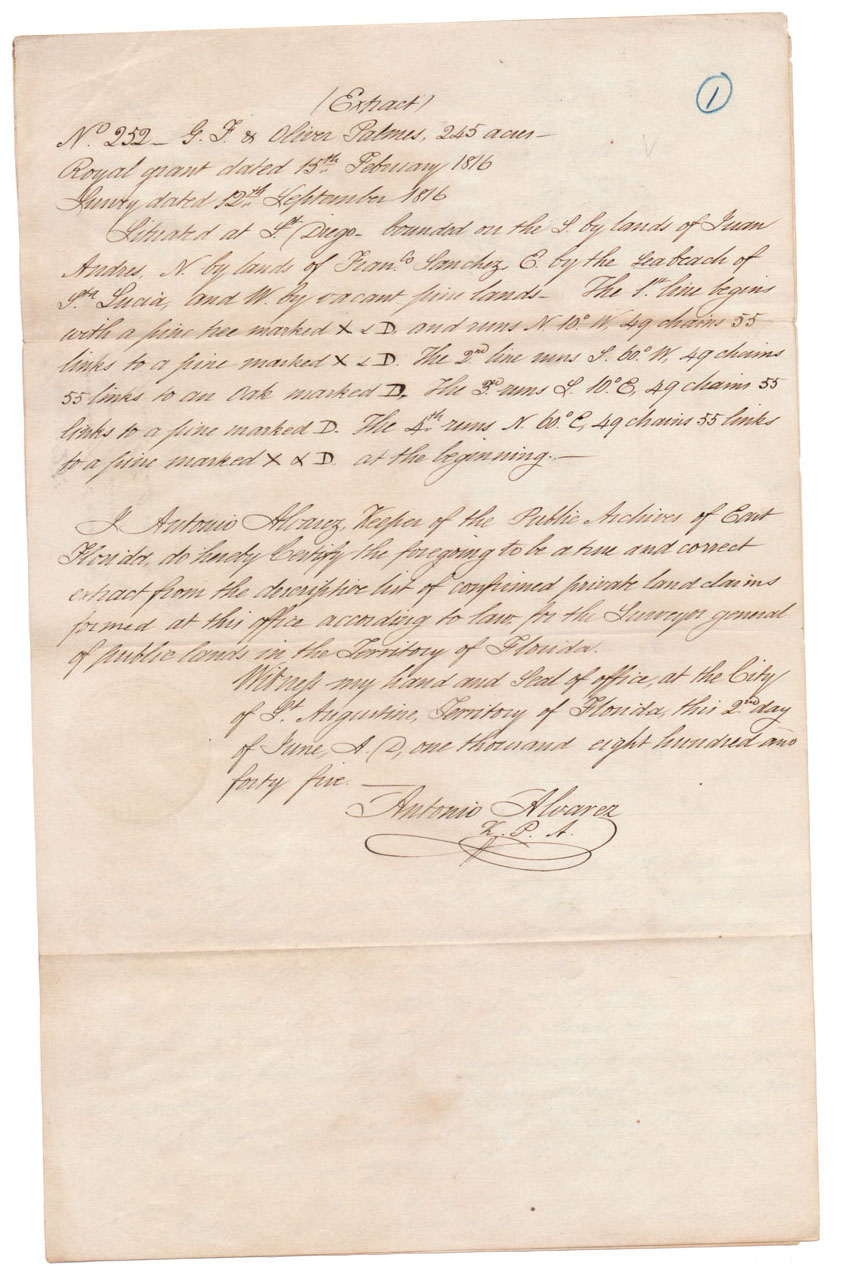 1
(Extract)
No. 252 — G. F. & Oliver Palmes, 245 acres —
Royal grant dated 15th February 1816
Survey dated 12th September 1816
Situated at St. Diego — bounded on the S. by lands of Juan
Andres, N. by lands of Franco. Sanchez, E. by the Sea beach of
Sta. Lucia, and W. by vacant pine lands — The 1st line begins
with a pine tree marked X & D, and runs N. 10° W, 49 chains 55
links to a pine marked X & D. The 2nd line runs S. 60° W, 49 chains
55 links to an Oak marked D. The 3d. runs S. 10° E, 49 chains 55
links to a pine marked D. The 4th runs N. 60° E, 49 chains 55 links
to a pine marked X & D at the beginning. —
I Antonio Alvarez, Keeper of the Public Archives of East
Florida, do hereby Certify the foregoing to be a true and correct
extract from the descriptive list of confirmed private land claims
formed at this office according to law for the Surveyor general
of public lands in the Territory of Florida.
Witness my hand and Seal of office, at the City
of St. Augustine, Territory of Florida, this 2nd day
of June, A. D, one thousand eight hundred and
forty five. —
Antonio Alvarez
K. P. A.